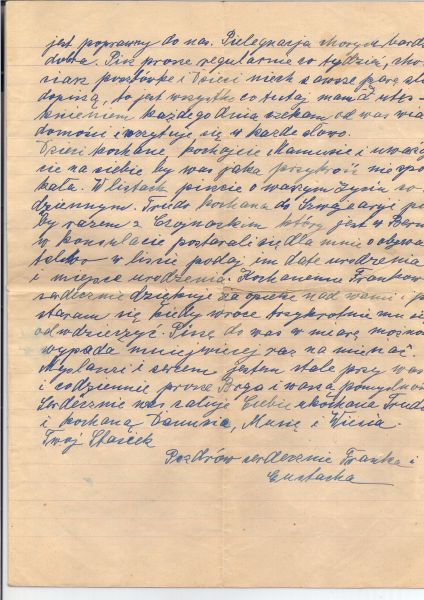 jest poprawny do nas. Pielęgnacja chorych bardz
dobra. Pisz proszę regularnie co tydzień, cho
ciarz pocztówkę i Dzieci niech zawsze parę sł
dopiszą, to jest wszystko co tutaj mam. Z utęs
knieniem każdego dnia czekam od was wia
domości i wczytuję się w każde słowo.
Dzieci kochane, kochajcie Mamusię i uważaj
cie na siebie by was jaka przykrość nie spo
kała. W listach piszcie o waszym życiu co
dziennym. Trudo kochana do Szwajcarji p
by razem z Czojnackim który jest w Bern
w konsulacie postarali się dla mnie o obywa
telstwo w liście podaj im datę urodzenia
i miejsce urodzenia. Kochanemu Frankow
serdecznie dziękuję za opiekę nad wami i p
staram się kiedy wrócę trzykrotnie mu si
odwdzięczyć. Piszę do was w miarę możno
wypada mniejwięcej raz na miesiąc.
Myślami i sercem jestem stale przy was
i codziennie proszę Boga o waszą pomyślnoś
Serdecznie was całuję Ciebie ukochana Trudo
i kochaną Danusię, Munię i Wiesia.
Twój Stasiek
Pozdrów serdecznie Franka i
Eustacha